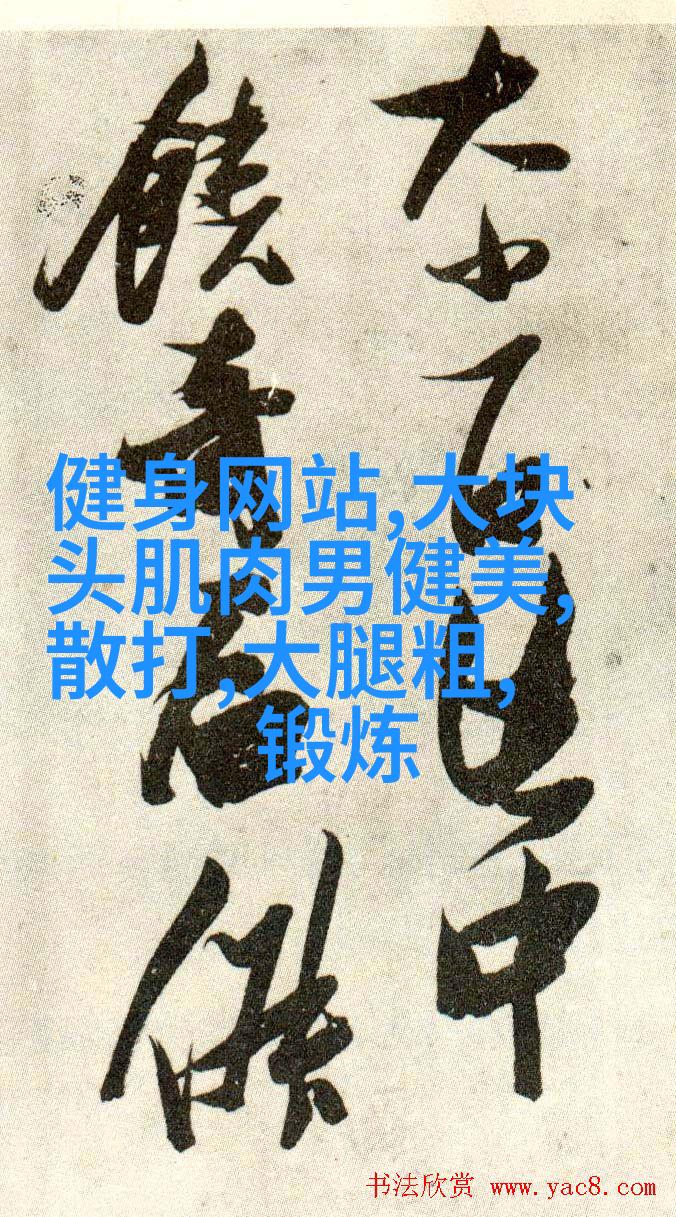 大小百世中
饒奇石
健身网站,大块
头肌肉男健美,
散打,大腿粗,
锻炼
书法欣赏 www.yac8.com